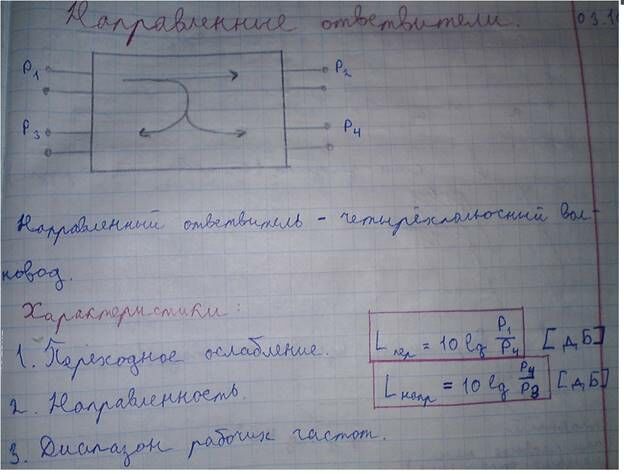 Направленные ответвители. 03.1
P1 P2
P3 P4
Направленный ответвитель - четырёхполюсный вол-
новод.
Характеристики:
1. Переходное ослабление. Lпер = 10 lg P1/P4 [дБ]
2. Направленность. Lнапр = 10 lg P4/P3 [дБ]
3. Диапазон рабочих частот.